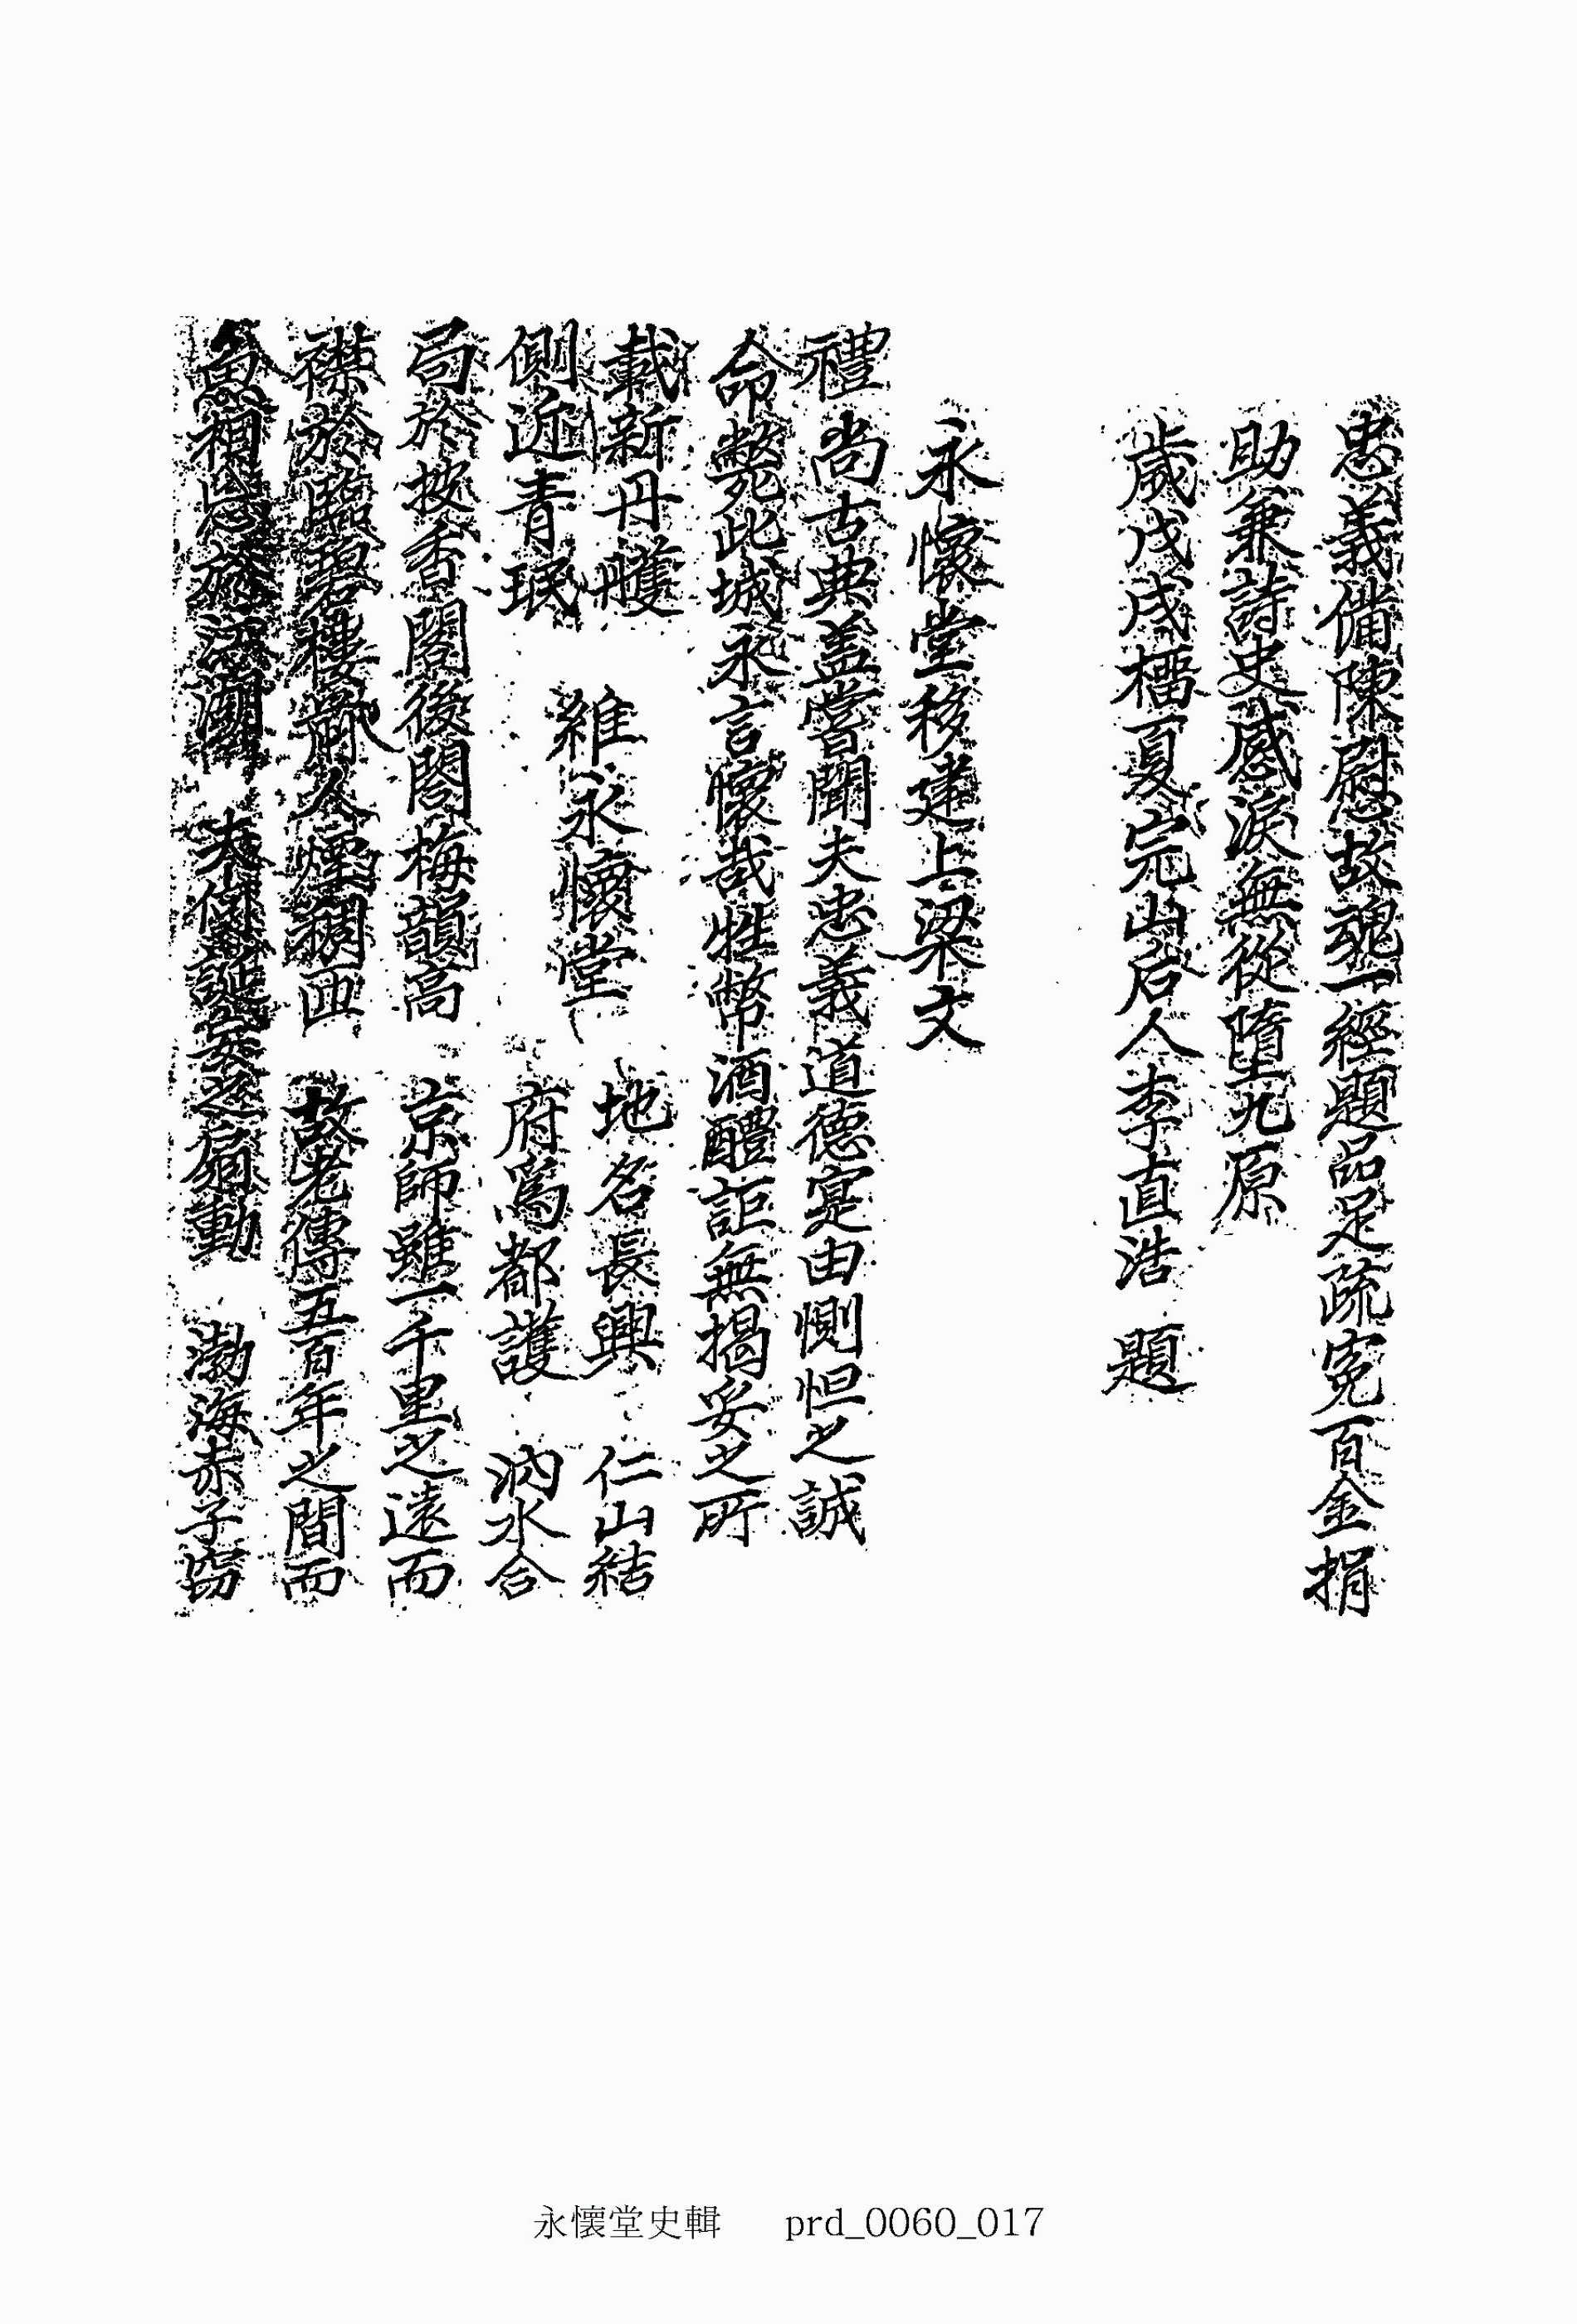 忠義備陳慰故魂一經題品足疏寃百金捐
助兼詩史感淚無從墮九原
歲戊戌榴夏完山后人李直浩 題
永懷堂移建上梁文
禮尚古典盖嘗聞夫忠義道德寔由惻怛之誠
命斃此城永言懷哉牲幣酒醴詎無揭妥之所
載新丹雘
維永懷堂
地名長興 仁山結
側近青珉
府爲都護 汭水合
局於披香閣後閣梅韻高 京師雖一千里之遠而
襟於臨碧樓前人煙稠匝 故老傳五百年之間而
魚相 渤海赤子
永懷堂史輯 prd_0060_017